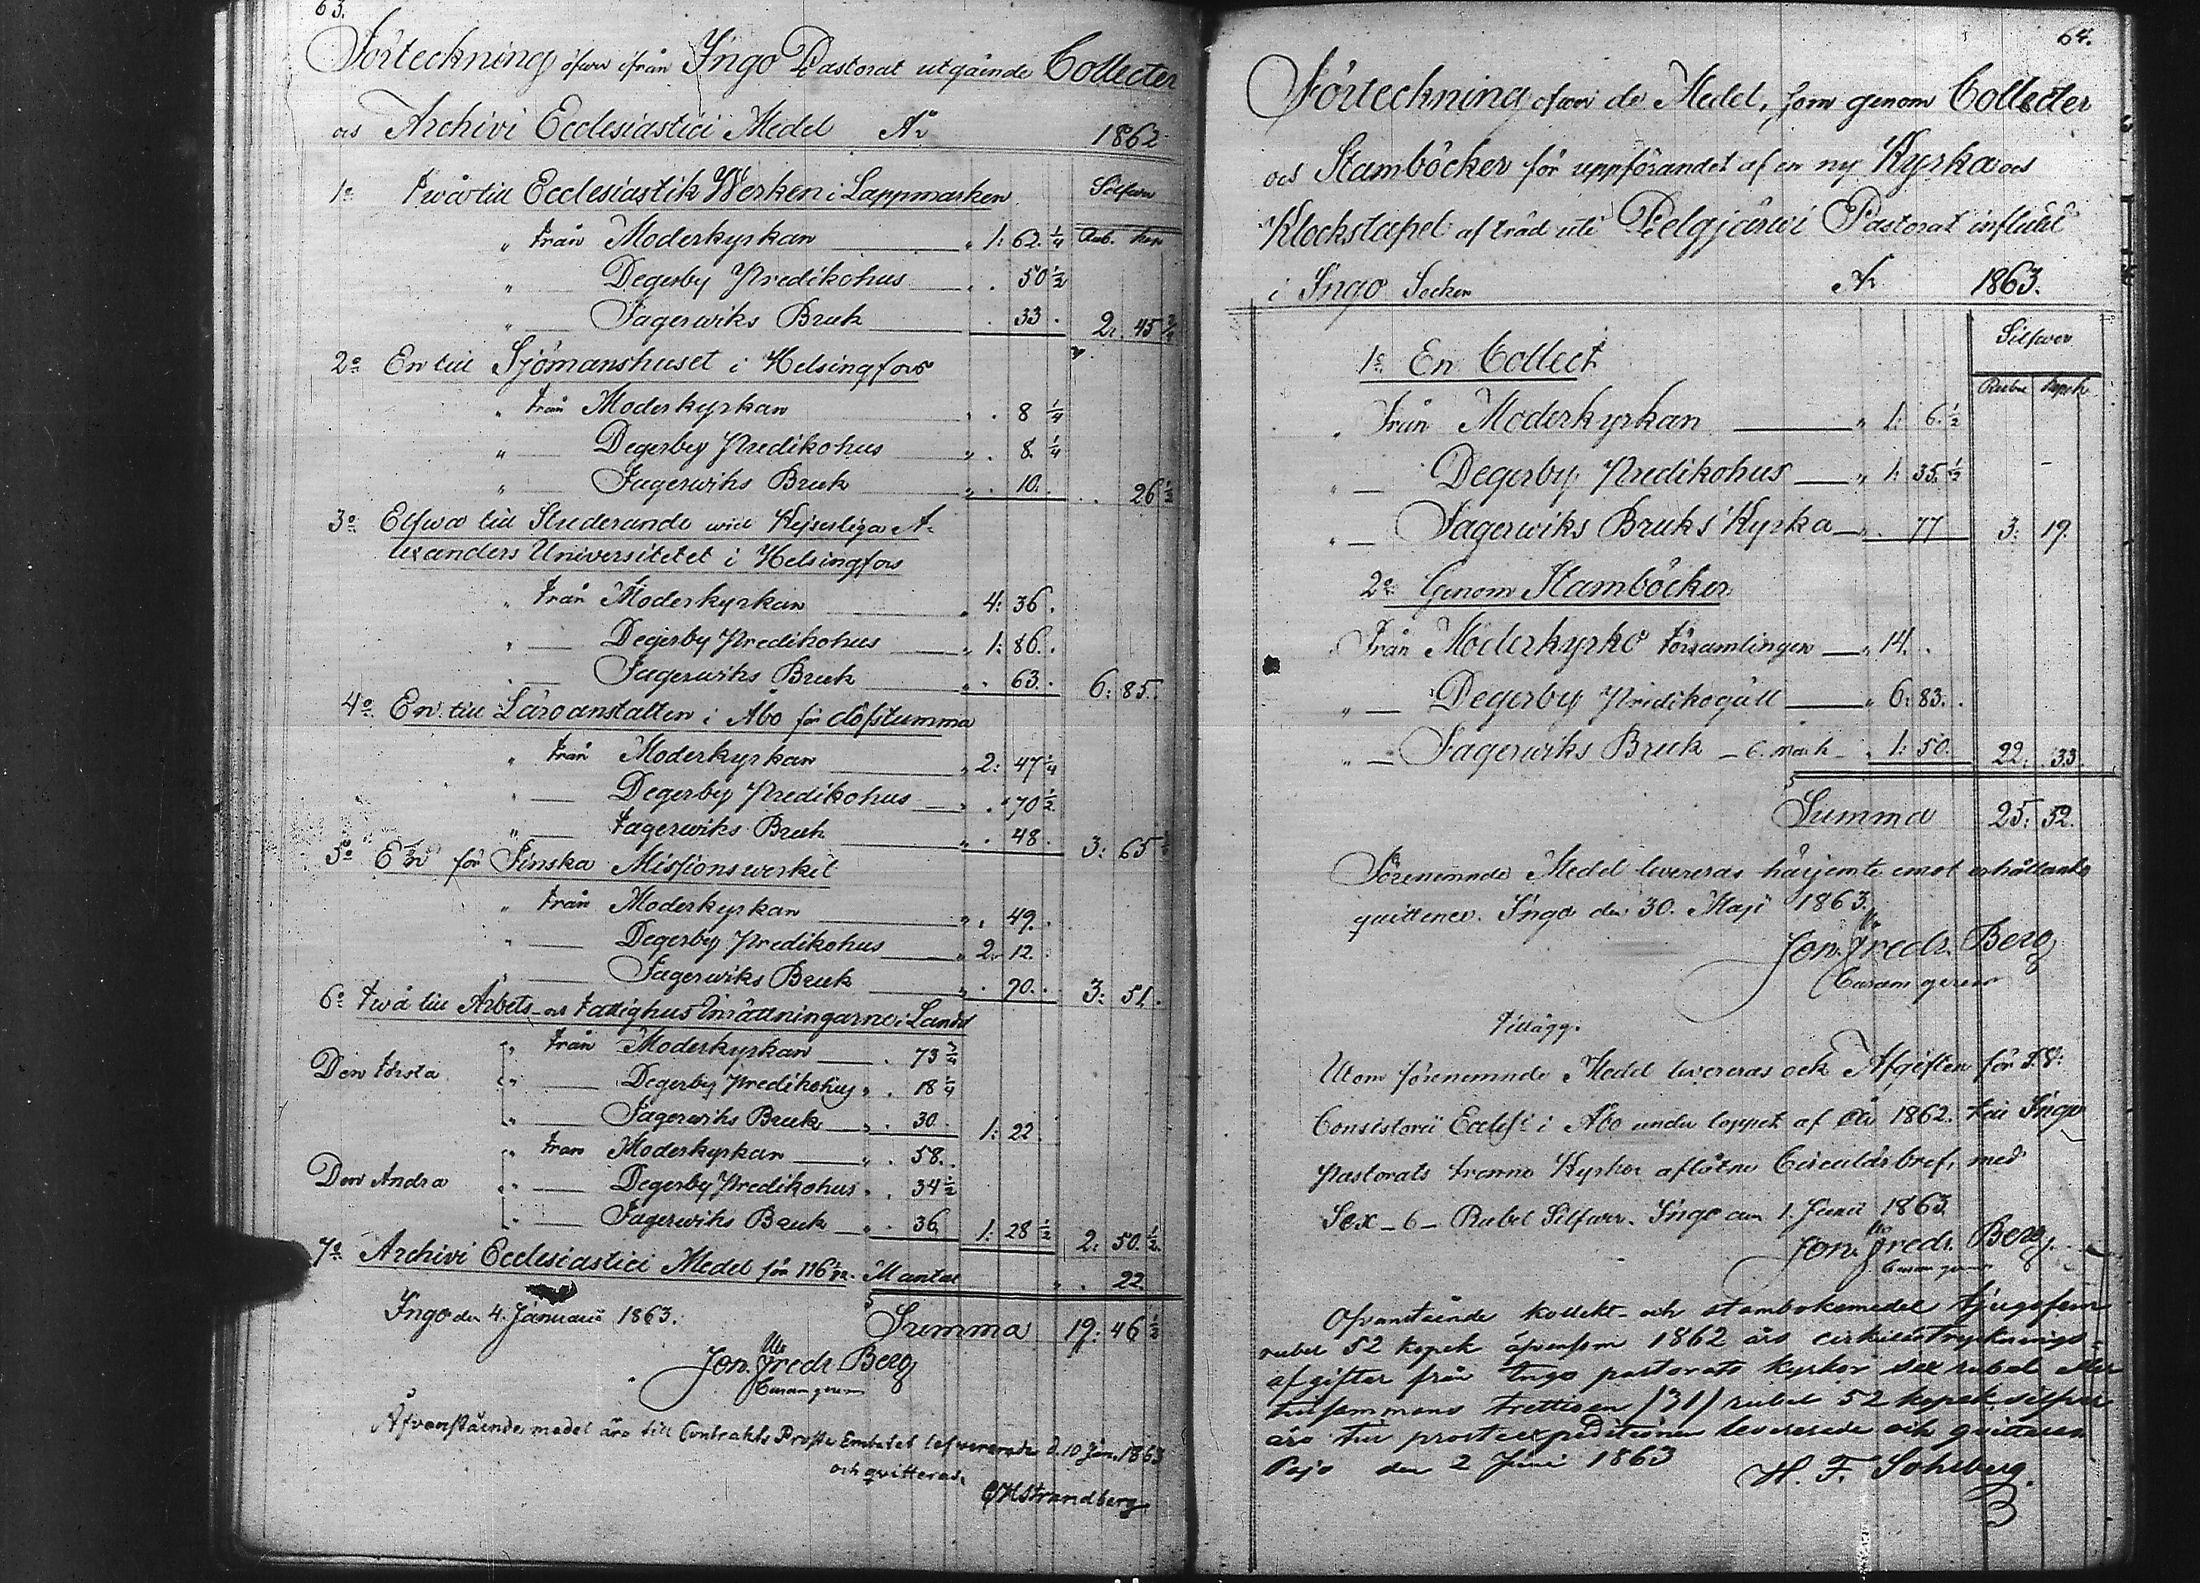 63.
Förteckning öfver ifrån Ingo Pastorat utgående Collecter
och Archivi Ecclesiastici Medel År 1862
1o Twå till Ecclesiastik Werken i Lappmarken Silfver
" från Moderkyrkan " 1: 62 1/4 Rub. kop
" — Degerby Predikohus " . 50 1/2
" — Fagerwiks Bruk . 33 . 2: 45 3/4
2o En till Sjömanshuset i Helsingfors
" från Moderkyrkan " . 8 1/4
" — Degerby Predikohus " . 8 1/4
" — Fagerwiks Bruk " . 10. . 26 1/2
3o Elfwa till Studerande wid Kejserliga A-
lexanders Universitetet i Helsingfors
" från Moderkyrkan " 4: 36 .
" — Degerby Predikohus " 1: 86. .
" — Fagerwiks Bruk " . 63. . 6: 85.
4o En till Läroanstalten i Åbo för döfstumma
" från Moderkyrkan " 2: 47 1/4
" — Degerby Predikohus " . 70 1/2
" — Fagerwiks Bruk " . 48 . 3: 65
5o En för Finska Missionswerket
" från Moderkyrkan " . 49. .
" — Degerby Predikohus " 2: 12. .
" — Fagerwiks Bruk " . 90. . 3: 51.
6o Twå till Arbets- och Fattighus Inrättningarne i Landet
" från Moderkyrkan — . 73 3/4
Den Första " — Degerby Predikohus " . 18 1/4
" — Fagerwiks Bruk " . 30 1: 22
" från Moderkyrkan — " . 58. .
Den Andra " — Degerby Predikohus " . 34 1/2
" — Fagerwiks Bruk — " . 36 1: 28 1/2 2: 50. 1/2
7o Archivi Ecclesiastici Medel för Mantal " . 22.
Ingo den 4. Januarii 1863. Summa 19: 46 1/2
Jon. Fredr. Berg
Curam gerens
Åfvanstående medel äro till Contrakts Prosts Embetet lefvererade d. 10 Jan. 1863
och qvitterade
Strandberg
64.
Förteckning öfwer de Medel, som genom Collecter
och Stamböcker för uppförandet af en ny Kyrka och
Klockstapel af träd uti Pelgjärwi Pastorat influtit
i Ingo Socken År 1863.
Silfwer
1o En Collect
Rubel Kopek
" Från Moderkyrkan — " 1: 6. 1/2
" — Degerby Predikohus — " 1: 35. 1/2
" — Fagerwiks Bruks Kyrka — . 77 3: 19.
2o Genom Stamböcker
" Från Moderkyrko Församlingen — " 14. .
" — Degerby Predikogäll — " 6: 83. .
" — Fagerwiks Bruk — 1: 50. 22. 33.
Summa 25: 52.
Förenemnde Medel levereras härjemte emot erhållande
quittence. Ingo den 30. Maji 1863.
Jon. Fredr. Berg
Curam gerens
Tillägg.
Utom förenemnde Medel levereras ock Afgiften för
Consistorii Eccles. i Åbo under loppet af år 1862 till Ingo
Pastorats trenne Kyrkor aflåtne Circulär bref, med
Sex — 6 — Rubel Silfwer. Ingo den 1. Junii 1863
Jon. Fredr. Berg.
Curam gerens
Ofvanstående kollekt- och stamboksmedel tjugofem
rubel 52 kopek äfvensom 1862 års cirkulärtrycknings-
afgifter från Ingo pastorats kyrkor sex rubel eller
tillsammans trettioen /31/ rubel 52 kopek silfver
äro till prosteexpeditionen levererade och qvitteras
Pojo den 2 Juni 1863 H. F. Sohlberg.